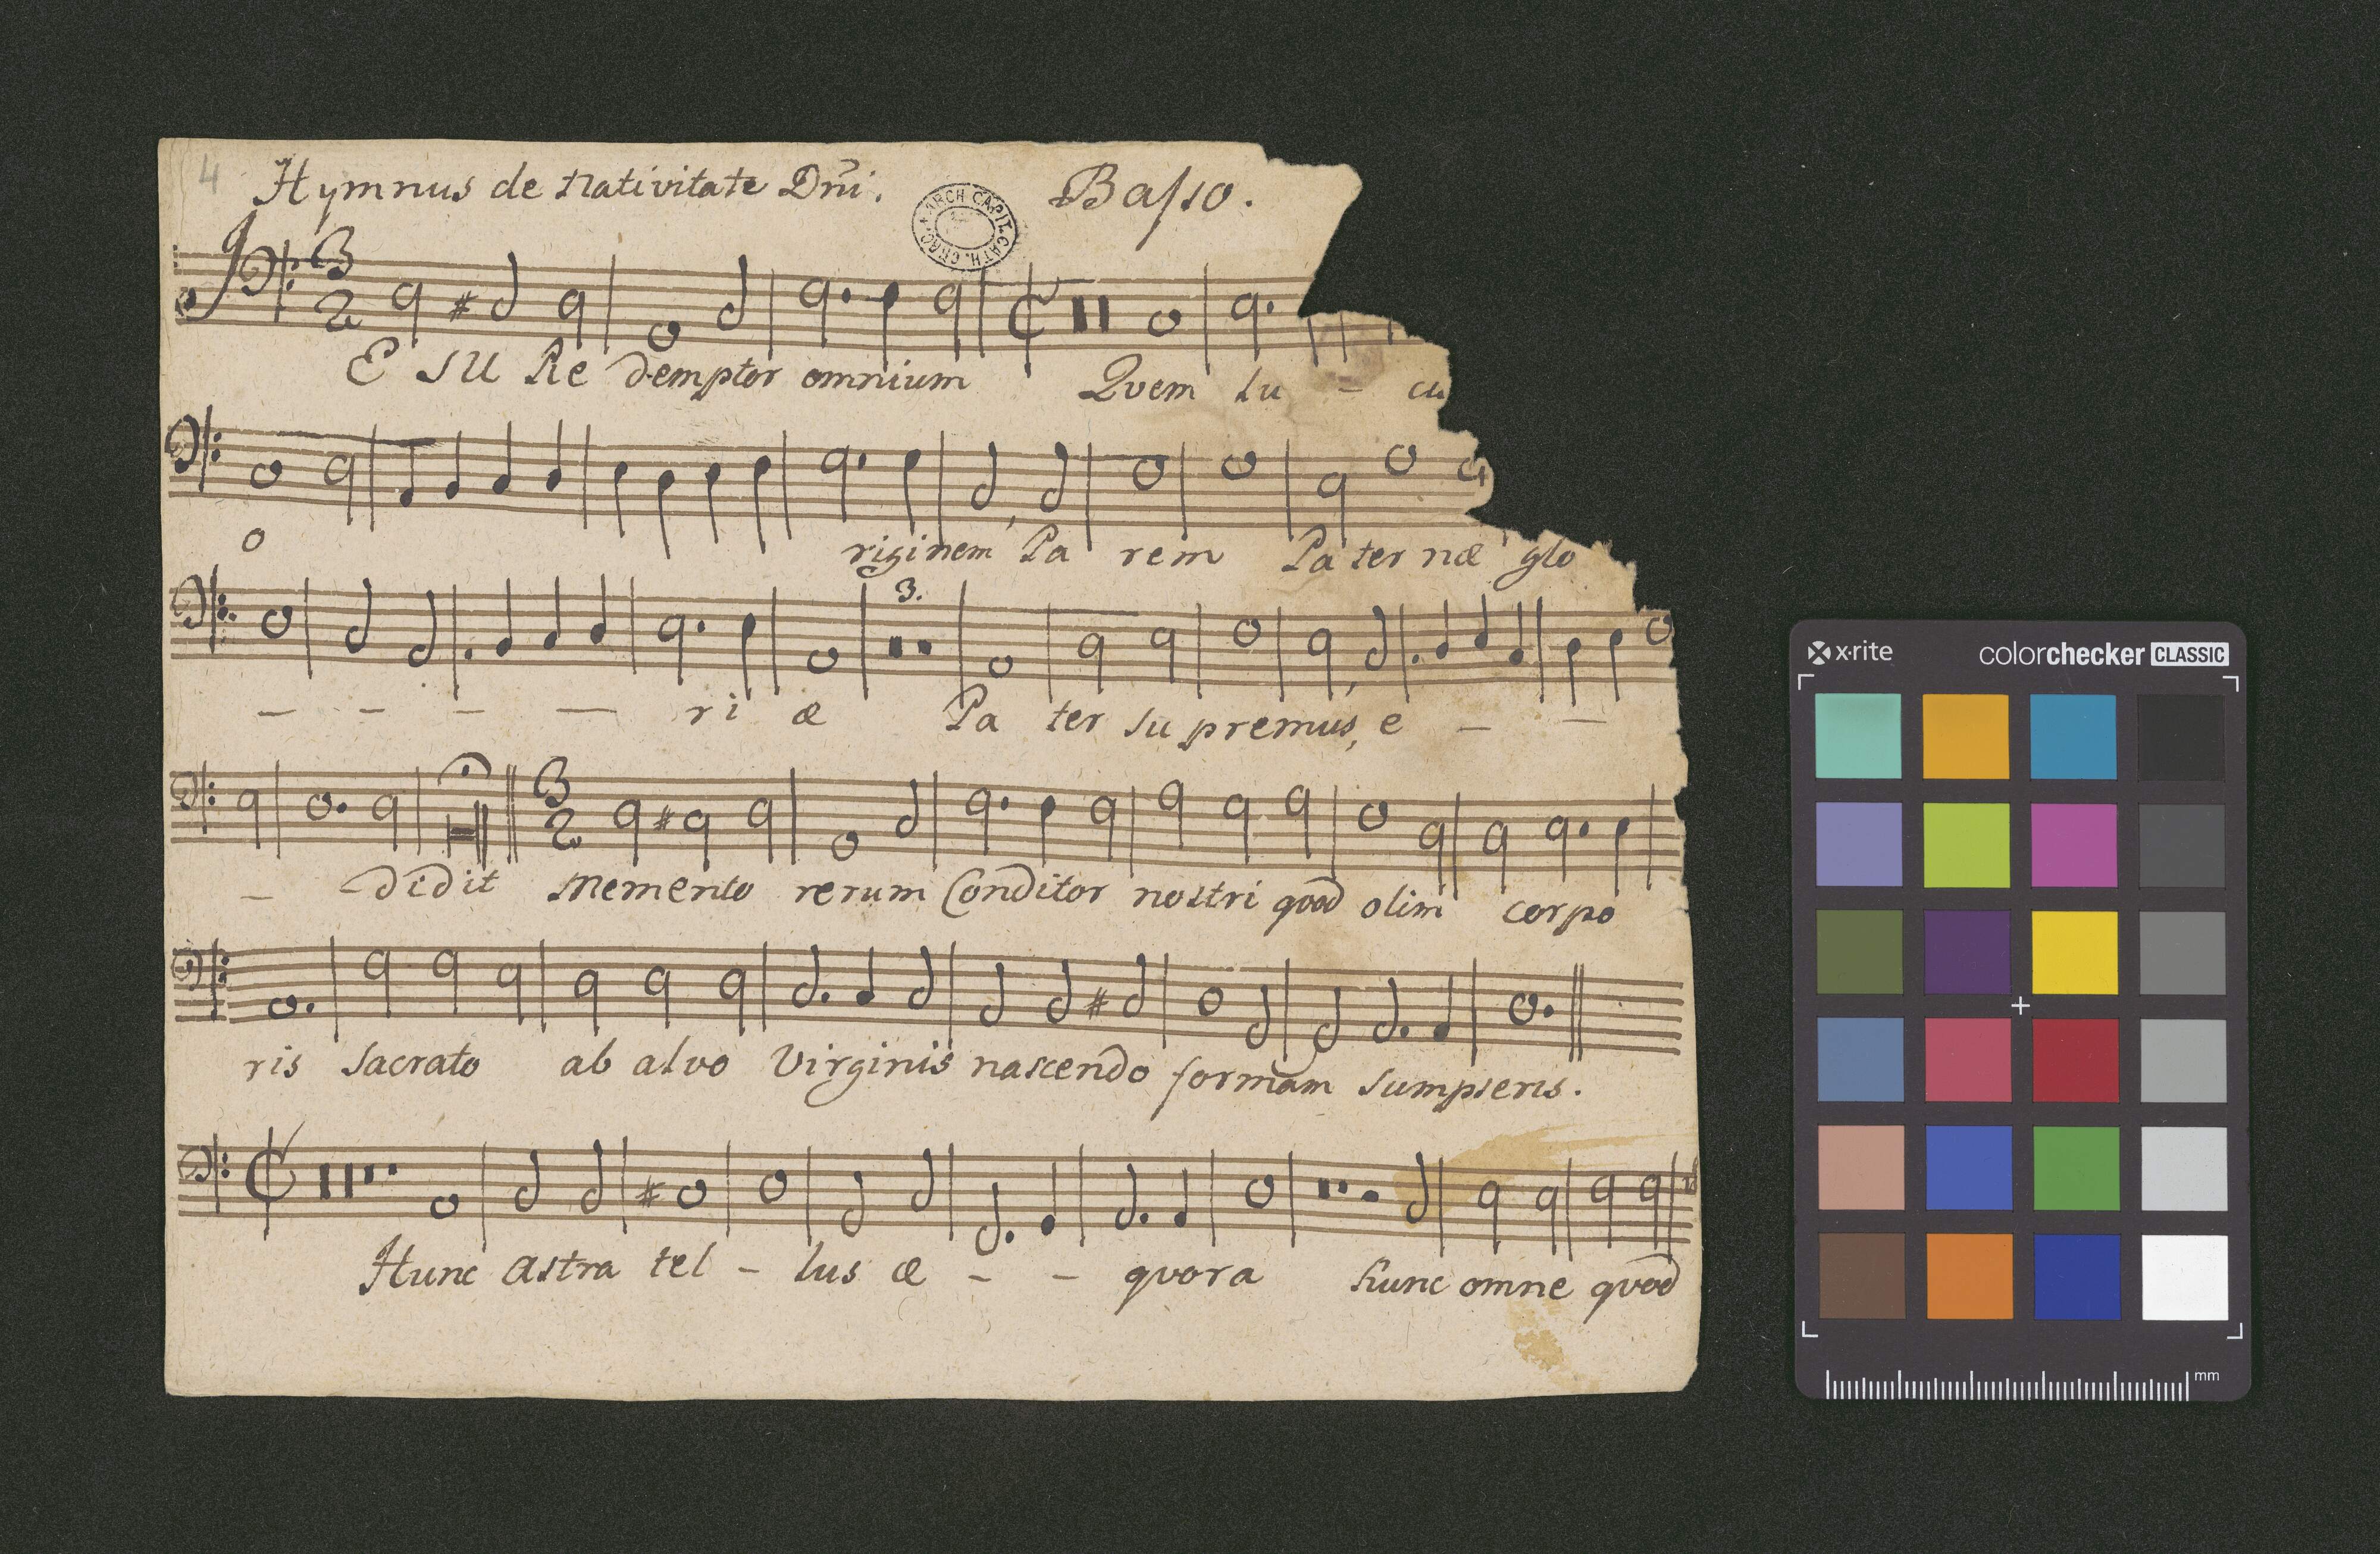 4 Hymnus de Nativitate Dñi. Basso.
ARCH CAPIT. CATH. CRAC.
3 2
JE SU Re demptor omnium Qvem lu - cu
o riginem Pa rem Pa ter næ glo
3.
- - - - ri æ Pa ter su premus, e - -
3 2
- didit Memento rerum Conditor nostri qvod olim corpo
ris sacrato ab alvo Virginis nascendo formam sumpseris.
Hunc astra tel - lus æ - - qvora hunc omne qvod
x·rite colorchecker CLASSIC
mm